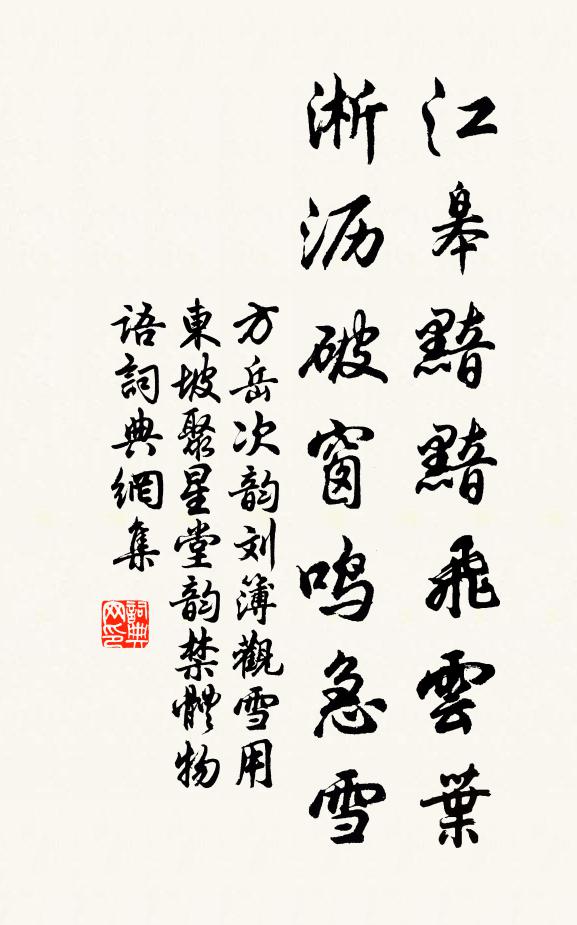 江皋黯黯飛雲葉
淅沥破窗鸣急雪
方岳次韵刘簿觀雪用
東坡聚星堂韵禁體物
語詞典網集
詞典
网印